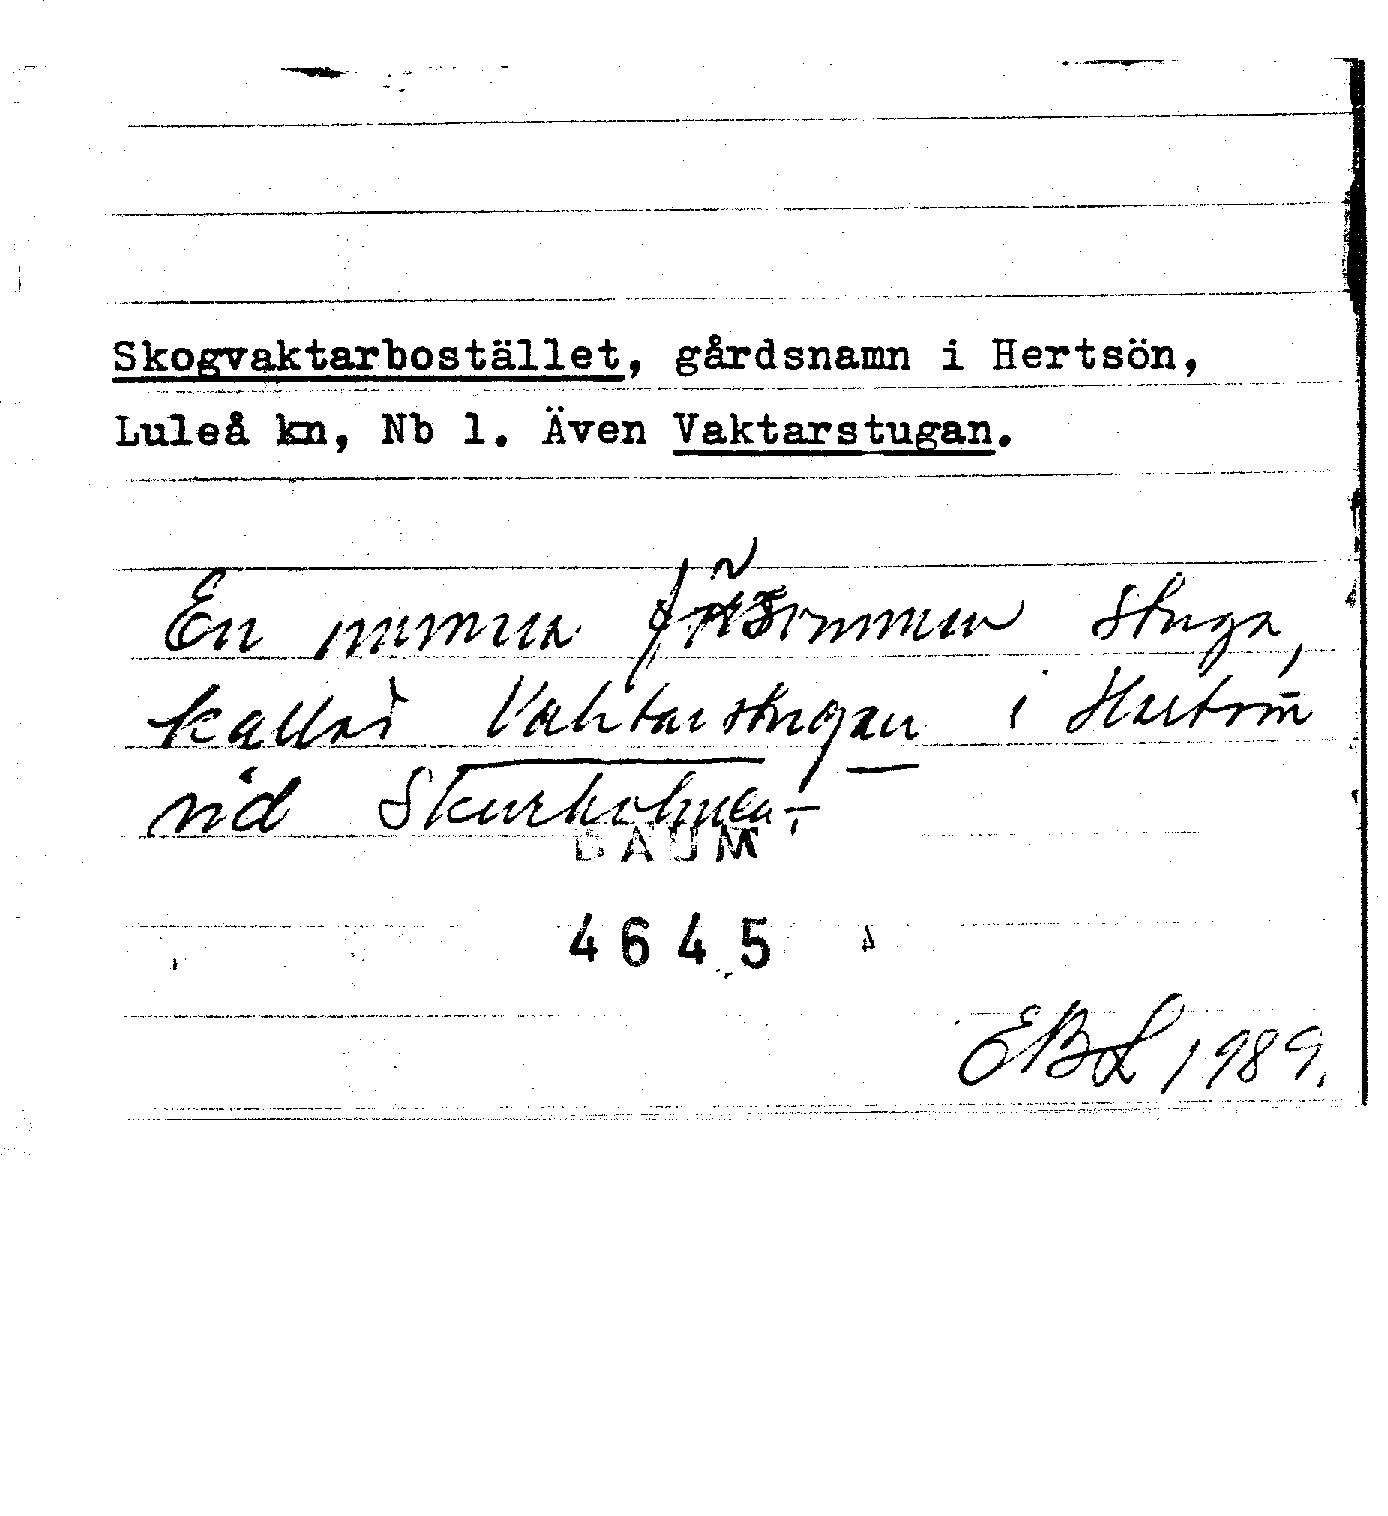 Skogvaktarbostället, gårdsnamn i Hertsön,
Luleå kn, Nb l. Även Vaktarstugan.
En numera försvunnen stuga,
kallas Vaktarstugan i Hertsön
vid Skurholmen.
DAUM
4645
EBL 1989.